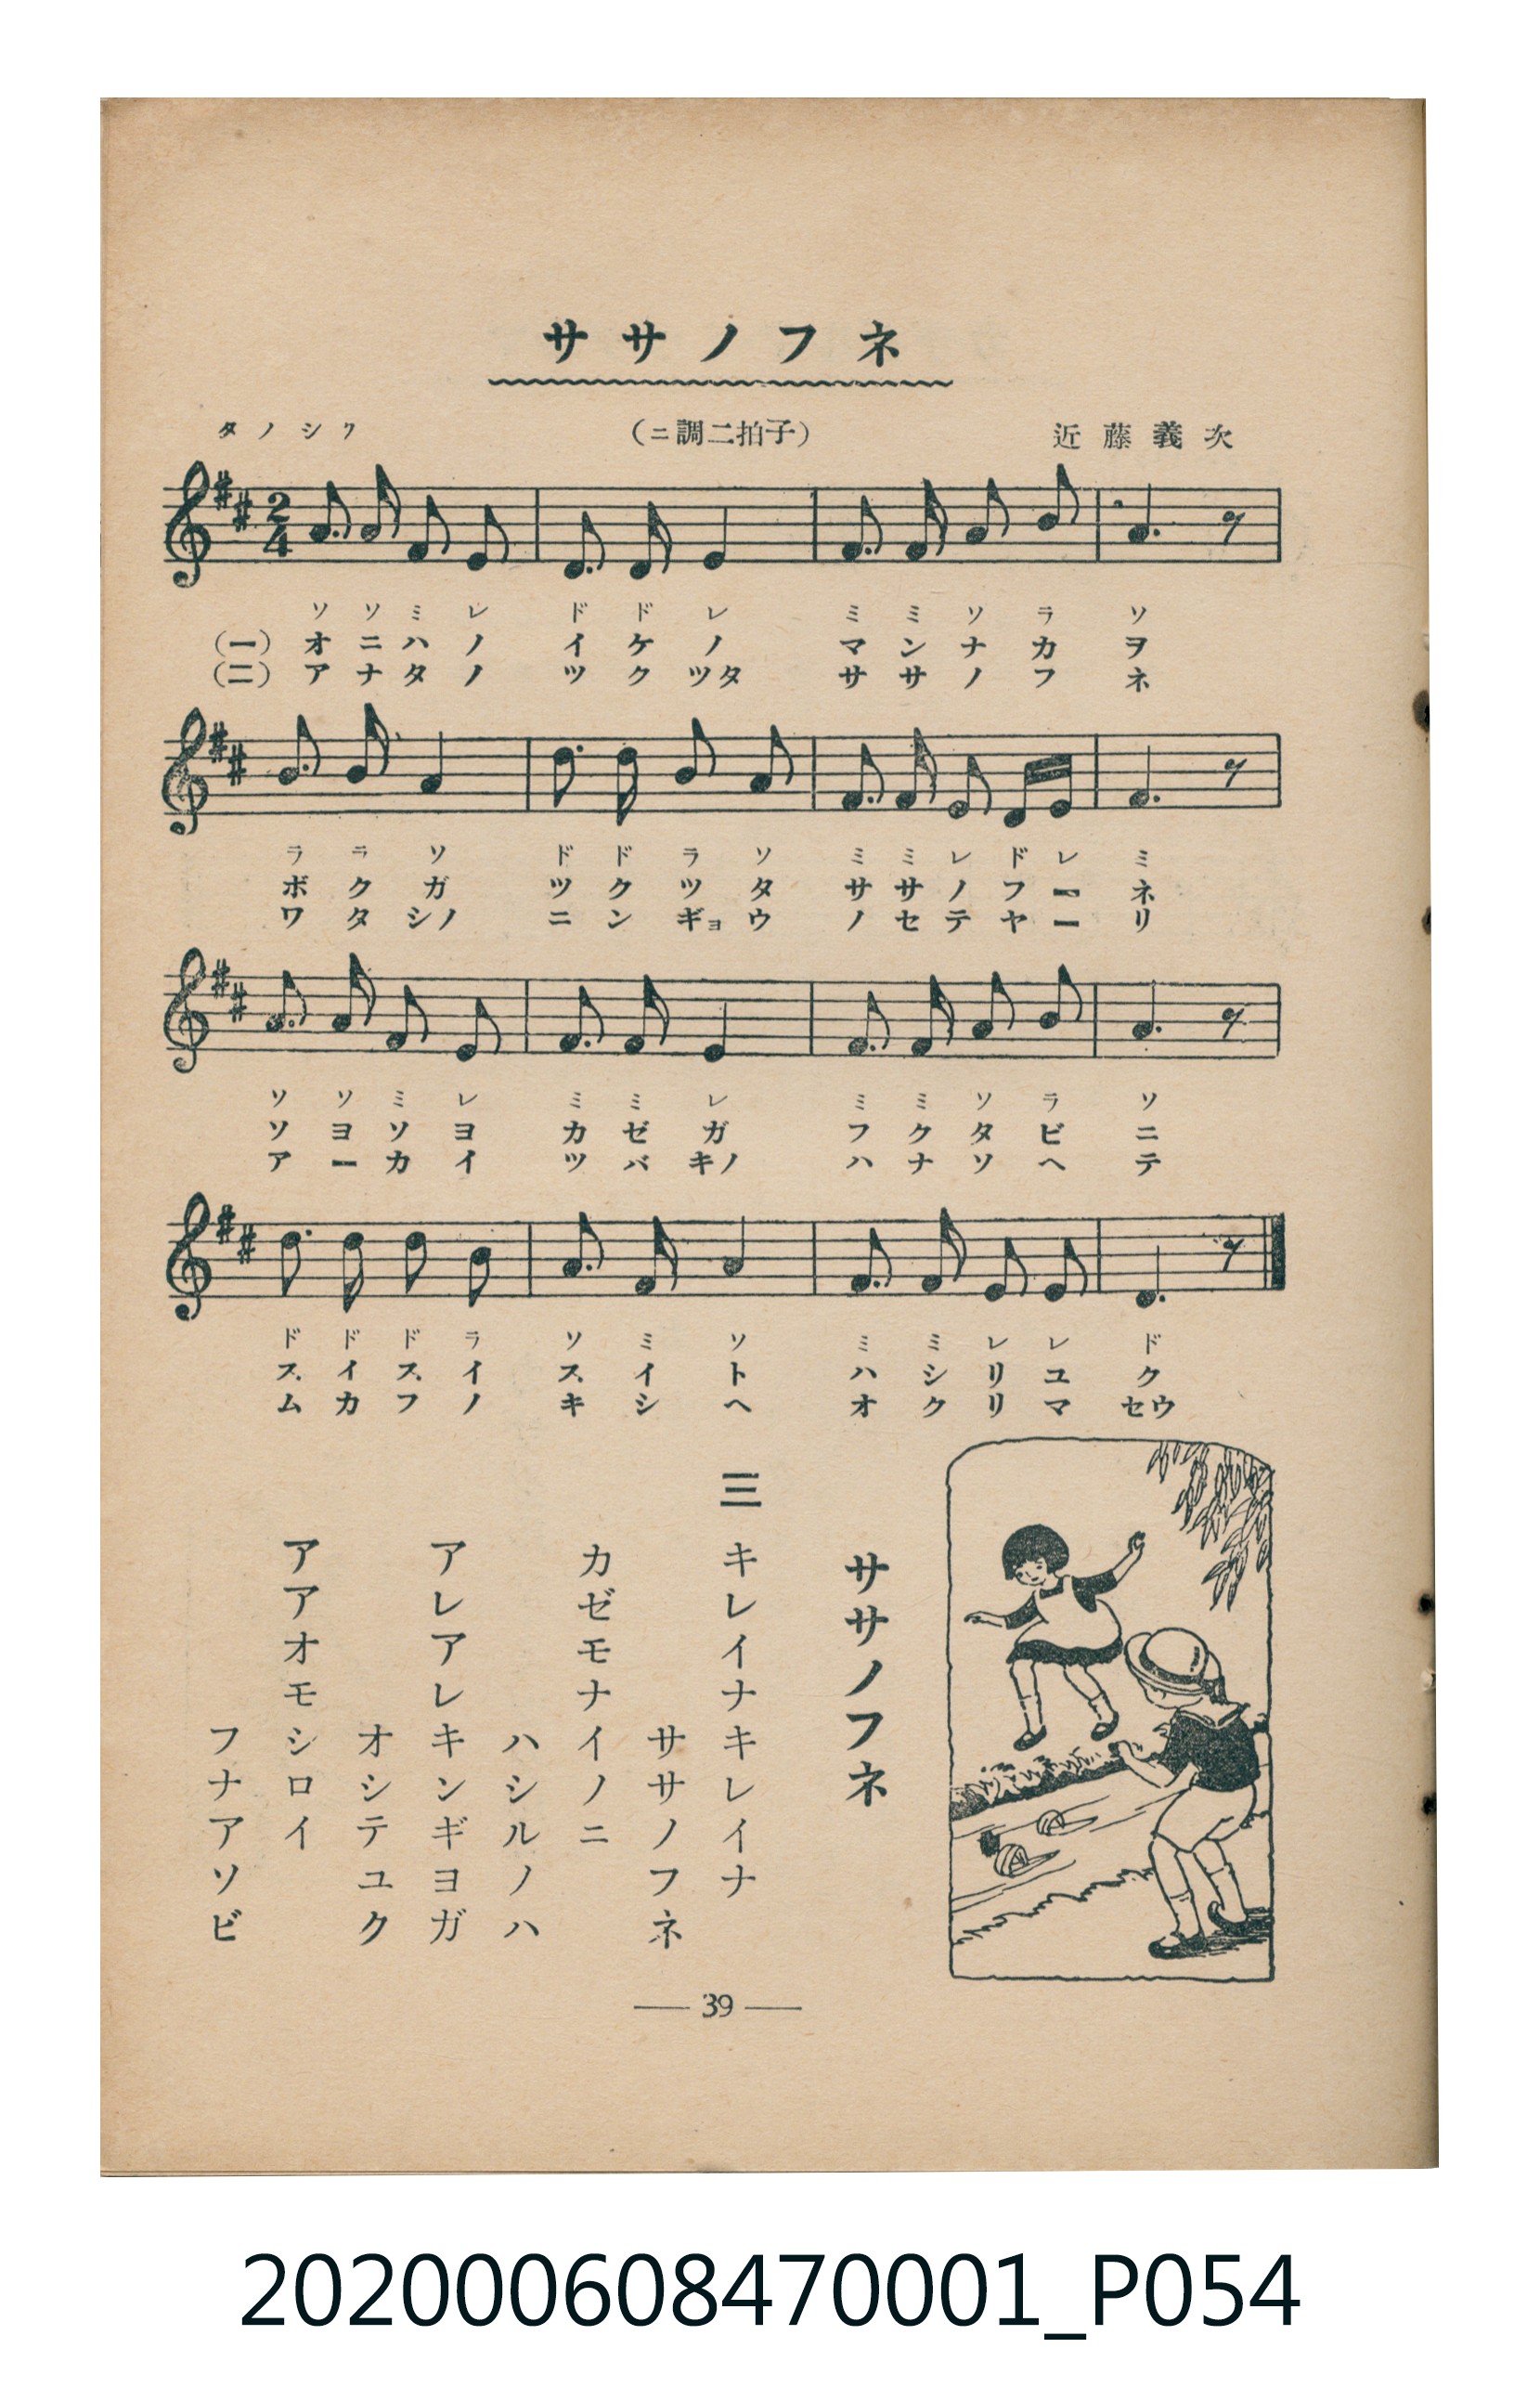 ササノフネ
タノシク
(ニ調二拍子)
近藤義次
2
4
ソ ソ ミ レ ド ド レ ミ ミ ソ ラ ソ
(一) オ ニ ハ ノ イ ケ ノ マ ン ナ カ ヲ
(二) ア ナ タ ノ ツ ク ツタ サ サ ノ フ ネ
ラ ラ ソ ド ド ラ ソ ミ ミ レ ド レ ミ
ボ ク ガ ツ ク ツ タ サ サ ノ フ ー ネ
ワ タ シノ ニ ン ギョ ウ ノ セ テ ヤ ー リ
ソ ソ ミ レ ミ ミ レ ミ ミ ソ ラ ソ
ソ ヨ ソ ヨ カ ゼ ガ フ ク タ ビ ニ
ア ー カ イ ツ バ キノ ハ ナ ソ ヘ テ
ド ド ド ラ ソ ミ ソ ミ ミ レ レ ド
ス イ ス イ ス イ ト ハ シ リ ユ ク
ム カ フ ノ キ シ ヘ オ ク リ マ セウ
ササノフネ
三 キレイナキレイナ
ササノフネ
カゼモナイノニ
ハシルノハ
アレアレキンギヨガ
オシテユク
アアオモシロイ
フナアソビ
— 39 —
202000608470001_P054